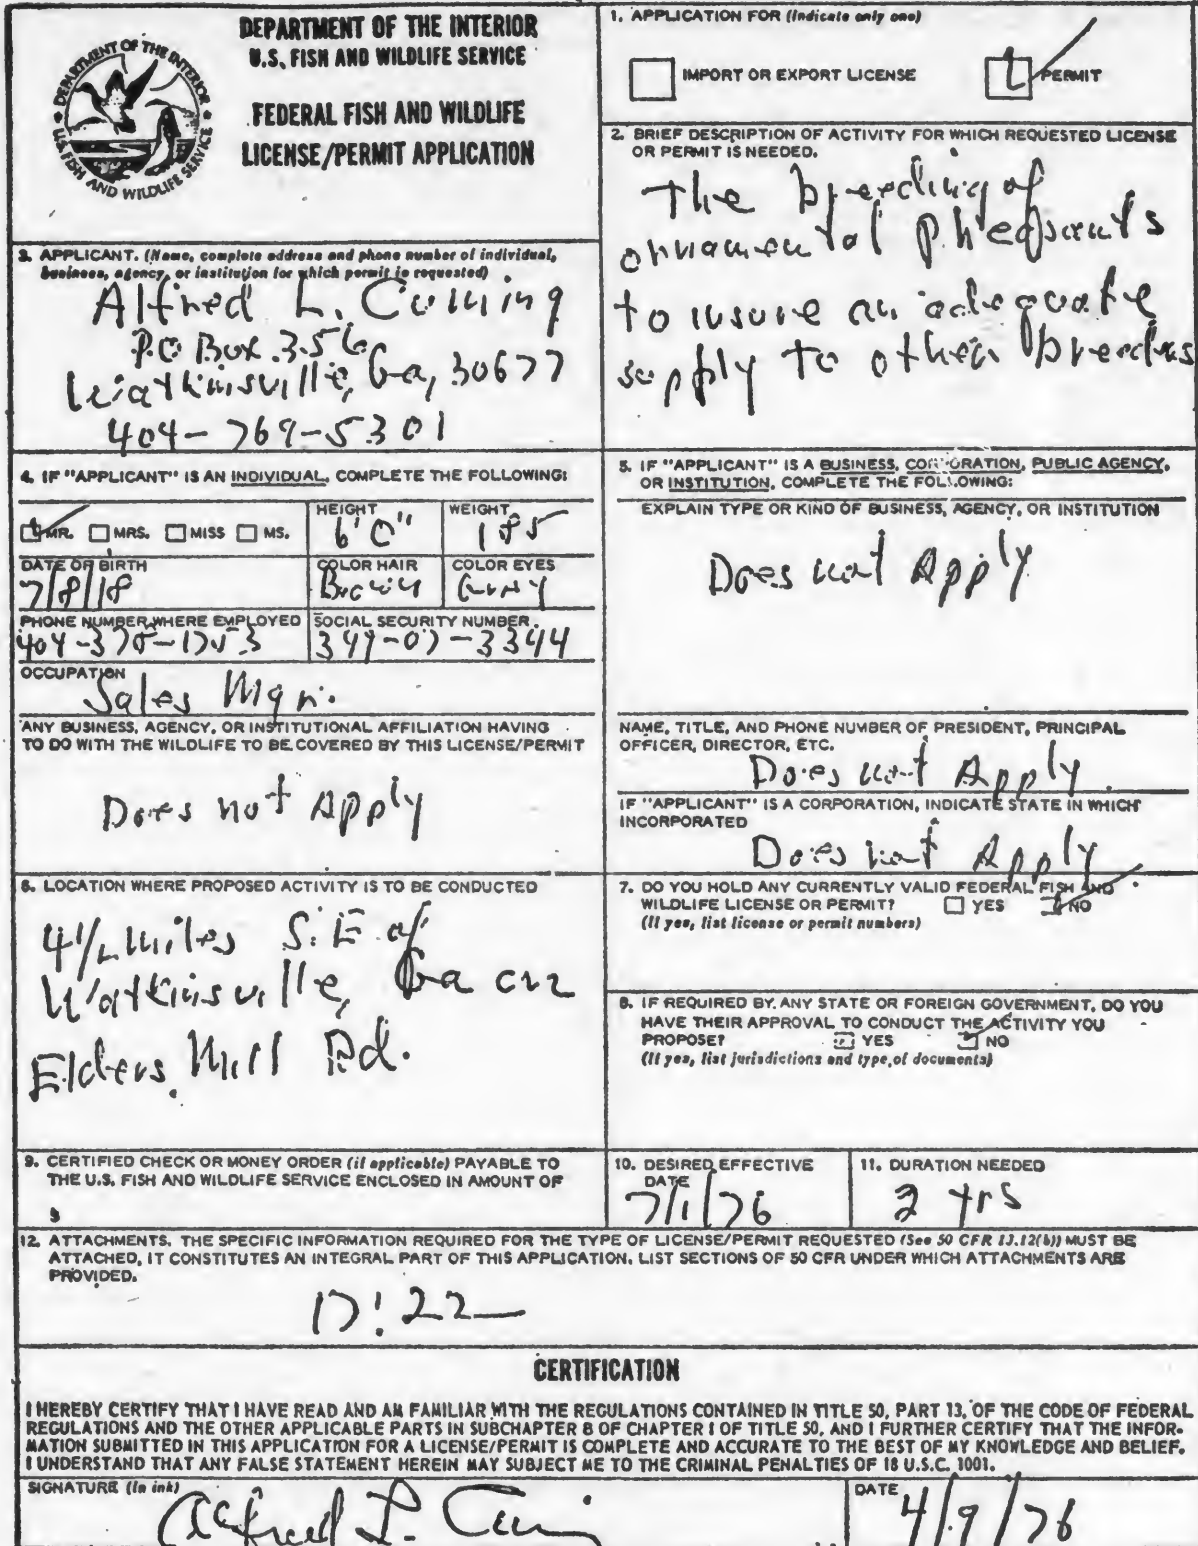 DEPARTMENT OF THE INTERIOR
U.S. FISH AND WILDLIFE SERVICE
FEDERAL FISH AND WILDLIFE
LICENSE/PERMIT APPLICATION
DEPARTMENT OF THE INTERIOR
U.S. FISH AND WILDLIFE SERVICE
1. APPLICATION FOR (Indicate only one)
IMPORT OR EXPORT LICENSE
PERMIT
2. BRIEF DESCRIPTION OF ACTIVITY FOR WHICH REQUESTED LICENSE
OR PERMIT IS NEEDED.
The breeding of
ornamental Pheasants
to insure an adequate
supply to other breeders
3. APPLICANT. (Name, complete address and phone number of individual,
business, agency, or institution for which permit is requested)
Alfred L. Cuming
P.O Box 356
Watkinsville, Ga, 30677
404-769-5301
4. IF "APPLICANT" IS AN INDIVIDUAL, COMPLETE THE FOLLOWING:
MR. MRS. MISS MS.
HEIGHT
6'0"
WEIGHT
185
DATE OF BIRTH
7/8/18
COLOR HAIR
Brown
COLOR EYES
PHONE NUMBER WHERE EMPLOYED
SOCIAL SECURITY NUMBER
OCCUPATION
Sales Mgr.
ANY BUSINESS, AGENCY, OR INSTITUTIONAL AFFILIATION HAVING
TO DO WITH THE WILDLIFE TO BE COVERED BY THIS LICENSE/PERMIT
Does not Apply
5. IF "APPLICANT" IS A BUSINESS, CORPORATION, PUBLIC AGENCY,
OR INSTITUTION, COMPLETE THE FOLLOWING:
EXPLAIN TYPE OR KIND OF BUSINESS, AGENCY, OR INSTITUTION
Does not Apply
NAME, TITLE, AND PHONE NUMBER OF PRESIDENT, PRINCIPAL
OFFICER, DIRECTOR, ETC.
Does not Apply
IF "APPLICANT" IS A CORPORATION, INDICATE STATE IN WHICH
INCORPORATED
Does not Apply
6. LOCATION WHERE PROPOSED ACTIVITY IS TO BE CONDUCTED
4 1/2 miles S.E of
Watkinsville, Ga on
Elders Mill Rd.
7. DO YOU HOLD ANY CURRENTLY VALID FEDERAL FISH AND
WILDLIFE LICENSE OR PERMIT? YES NO
(If yes, list license or permit numbers)
8. IF REQUIRED BY ANY STATE OR FOREIGN GOVERNMENT, DO YOU
HAVE THEIR APPROVAL TO CONDUCT THE ACTIVITY YOU
PROPOSE? YES NO
(If yes, list jurisdictions and type of documents)
9. CERTIFIED CHECK OR MONEY ORDER (if applicable) PAYABLE TO
THE U.S. FISH AND WILDLIFE SERVICE ENCLOSED IN AMOUNT OF
$
10. DESIRED EFFECTIVE
DATE
7/1/76
11. DURATION NEEDED
2 yrs
12. ATTACHMENTS. THE SPECIFIC INFORMATION REQUIRED FOR THE TYPE OF LICENSE/PERMIT REQUESTED (See 50 CFR 13.12(b)) MUST BE
ATTACHED, IT CONSTITUTES AN INTEGRAL PART OF THIS APPLICATION. LIST SECTIONS OF 50 CFR UNDER WHICH ATTACHMENTS ARE
PROVIDED.
17.22
CERTIFICATION
I HEREBY CERTIFY THAT I HAVE READ AND AM FAMILIAR WITH THE REGULATIONS CONTAINED IN TITLE 50, PART 13, OF THE CODE OF FEDERAL
REGULATIONS AND THE OTHER APPLICABLE PARTS IN SUBCHAPTER B OF CHAPTER I OF TITLE 50, AND I FURTHER CERTIFY THAT THE INFOR-
MATION SUBMITTED IN THIS APPLICATION FOR A LICENSE/PERMIT IS COMPLETE AND ACCURATE TO THE BEST OF MY KNOWLEDGE AND BELIEF.
I UNDERSTAND THAT ANY FALSE STATEMENT HEREIN MAY SUBJECT ME TO THE CRIMINAL PENALTIES OF 18 U.S.C. 1001.
SIGNATURE (In ink)
Alfred L. Cuming
DATE
4/9/76